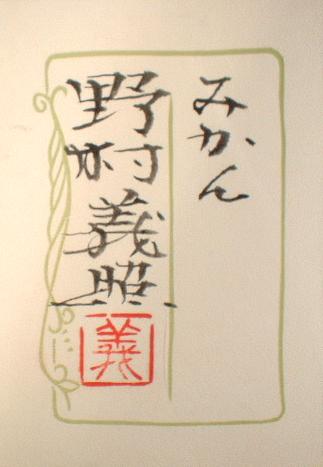 みかん
野村義照
義